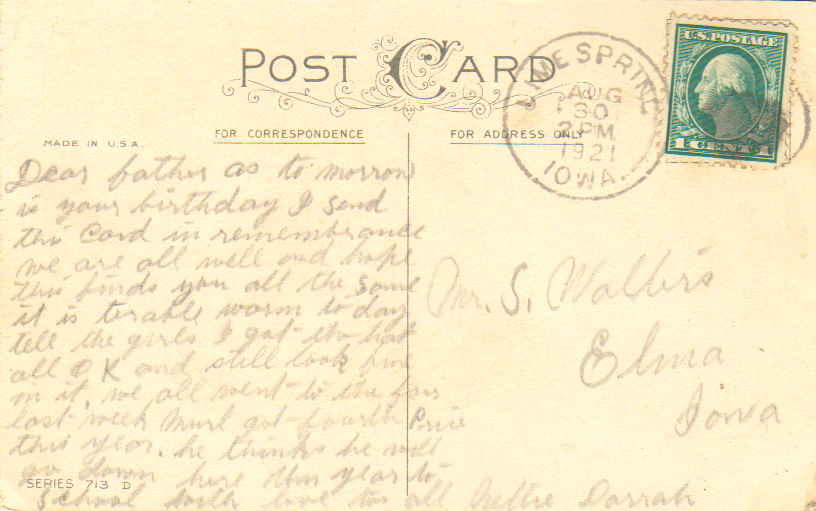 POST CARD
FOR CORRESPONDENCE
FOR ADDRESS ONLY
MADE IN U.S.A.
LIME SPRING
AUG
30
2 PM
1921
IOWA.
U.S. POSTAGE
1 CENTS 1
Dear father as to morrow
is your birthday I send
this Card in remembrance
we are all well and hope
this finds you all the same
it is terable warm to day
tell the girls I got the hat
all OK and still look fine
in it, we all went to the fair
last week Murl got fourth Price
this year. he thinks he will
go down here this year to
School with love to all Nettie Darrah
Mr. S. Walters
Elma
Iowa
SERIES 713 D